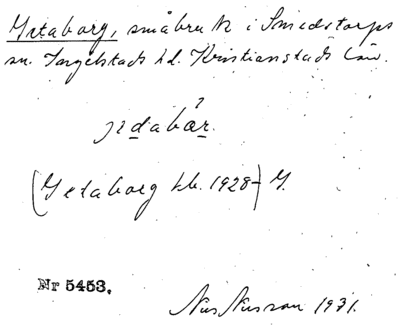 Getaborg, småbruk i Smedstorps
sn. Ingelstads hd. Kristianstads län.
jedabår.
(Getaborg kb. 1928-) G.
Nr 5453.
Nils Nilsson 1931.